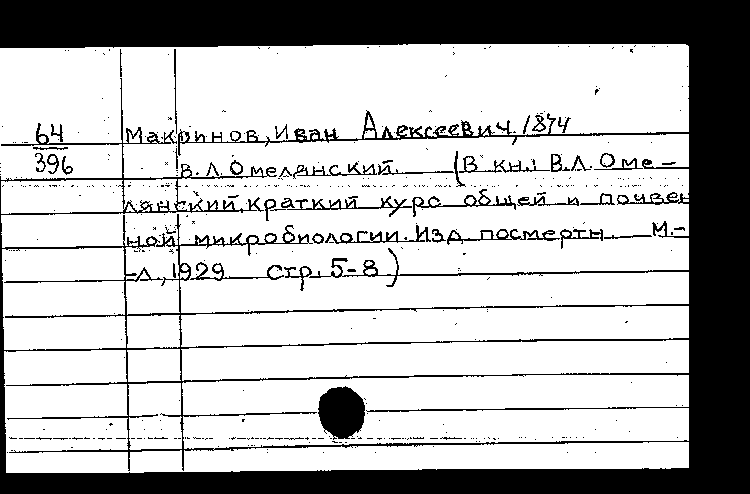 64 Макринов, Иван Алексеевич, 1874
396 В.Л.Омелянский. (В кн.: В.Л. Оме-
лянский. Краткий курс общей и почвен
ной микробиологии. Изд. посмертн. М.-
-Л., 1929 стр. 5-8)